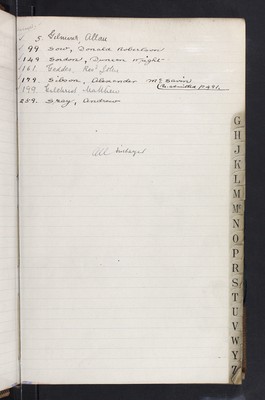 5 Gilmour, Allan
99 Gow, Donald Robertson
149 Gordon, Duncan Wright
161 Geddes, Revd John
179. Gibson, Alexander McGavin
199 Gilchrist Matthew
259. Gray, Andrew
All
G
H
J
K
L
M
Mc
N
O
P
R
S
T
U
V
W
Y
Z